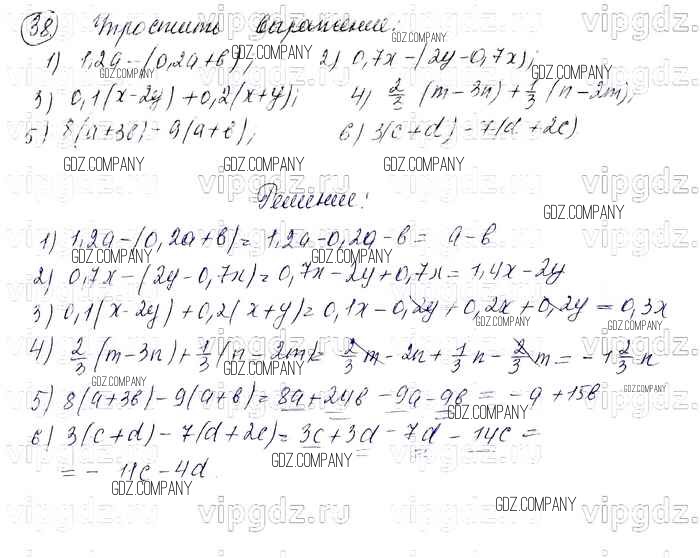 38) Упростить выражение:
1) 1,2a-(0,2a+в); 2) 0,7x-(2y-0,7x);
3) 0,1(x-2y)+0,2(x+y); 4) 2/3 (m-3n)+1/3(n-2m);
5) 8(a+3в)-9(a+в); 6) 3(c+d)-7(d+2c)
Решение:
1) 1,2a-(0,2a+в)=1,2a-0,2a-в= a-в
2) 0,7x-(2y-0,7x)=0,7x-2y+0,7x=1,4x-2y
3) 0,1(x-2y)+0,2(x+y)=0,1x-0,2y+0,2x+0,2y=0,3x
4) 2/3 (m-3n)+1/3(n-2m)= 2/3 m-2n+1/3 n-2/3 m=-1 2/3 n
5) 8(a+3в)-9(a+в)=8a+24в-9a-9в=-a+15в
6) 3(c+d)-7(d+2c)=3c+3d-7d-14c=
=-11c-4d
vipgdz.ru
GDZ.COMPANY